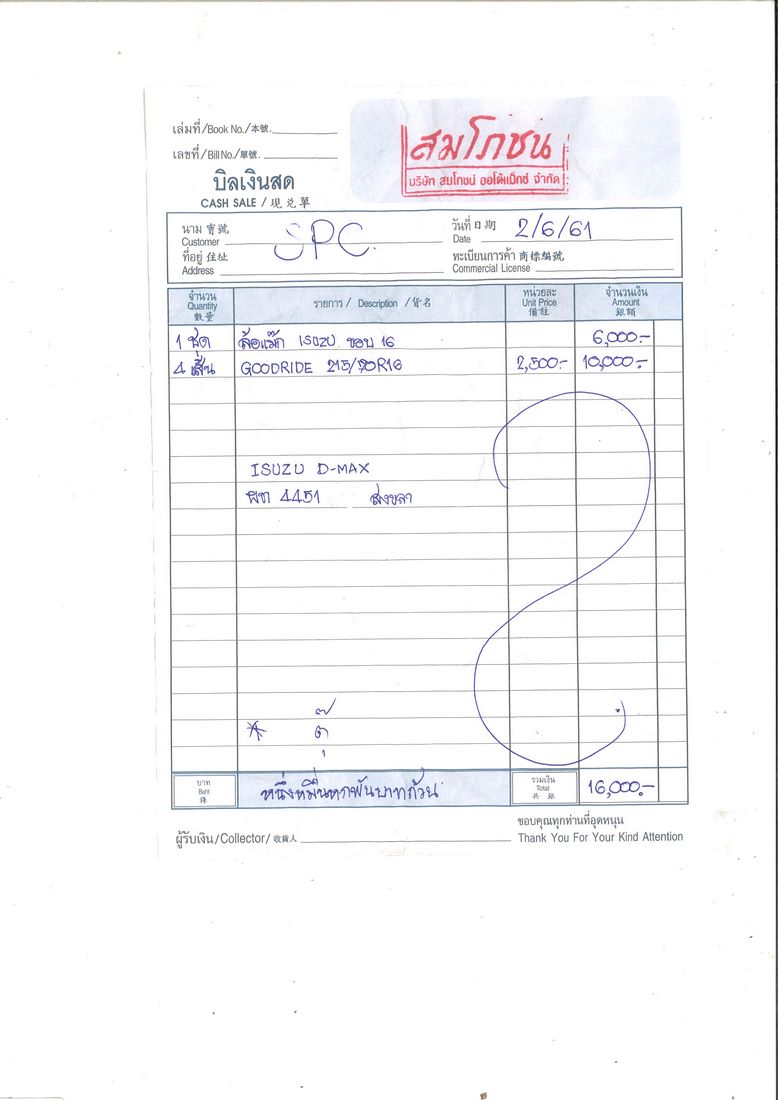 เล่มที่/Book No./本號.
สมโภชน์
เลขที่/Bill No./單號.
บริษัท สมโภชน์ ออโต้แม็กซ์ จำกัด
บิลเงินสด
CASH SALE / 現兑單
นาม 寳號
Customer
SPC.
วันที่ 日期
Date
2/6/61
ที่อยู่ 住址
Address
ทะเบียนการค้า 商標編號
Commercial License
จำนวน
Quantity
數量
รายการ / Description / 貨名
หน่วยละ
Unit Price
備註
จำนวนเงิน
Amount
銀額
1 ชุด ล้อแม๊ก ISUZU ขอบ 16 6,000.-
4 เส้น GOODRIDE 215/70R16 2,500.- 10,000.-
ISUZU D-MAX
4451 สงขลา
* ตุ๊
บาท
Baht
銖
หนึ่งหมื่นหกพันบาทถ้วน
รวมเงิน
Total
共銀
16,000.-
ขอบคุณทุกท่านที่อุดหนุน
ผู้รับเงิน/Collector/收貨人
Thank You For Your Kind Attention